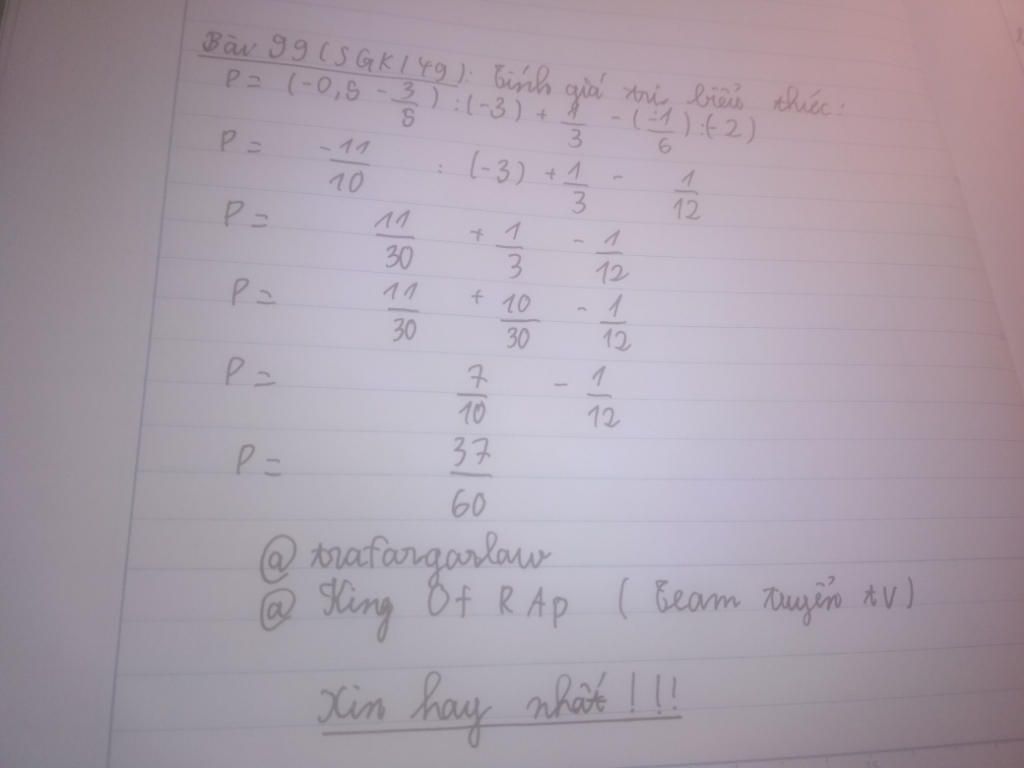 Bài 99 (SGK/49): Tính giá trị biểu thức:
P = (-0,5 - 3/5) : (-3) + 1/3 - (-1/6) : (-2)
P = -11/10 : (-3) + 1/3 - 1/12
P = 11/30 + 1/3 - 1/12
P = 11/30 + 10/30 - 1/12
P = 7/10 - 1/12
P = 37/60
@ trafargarlaw
@ King Of RAp ( team tuyển tV)
Xin hay nhất !!!